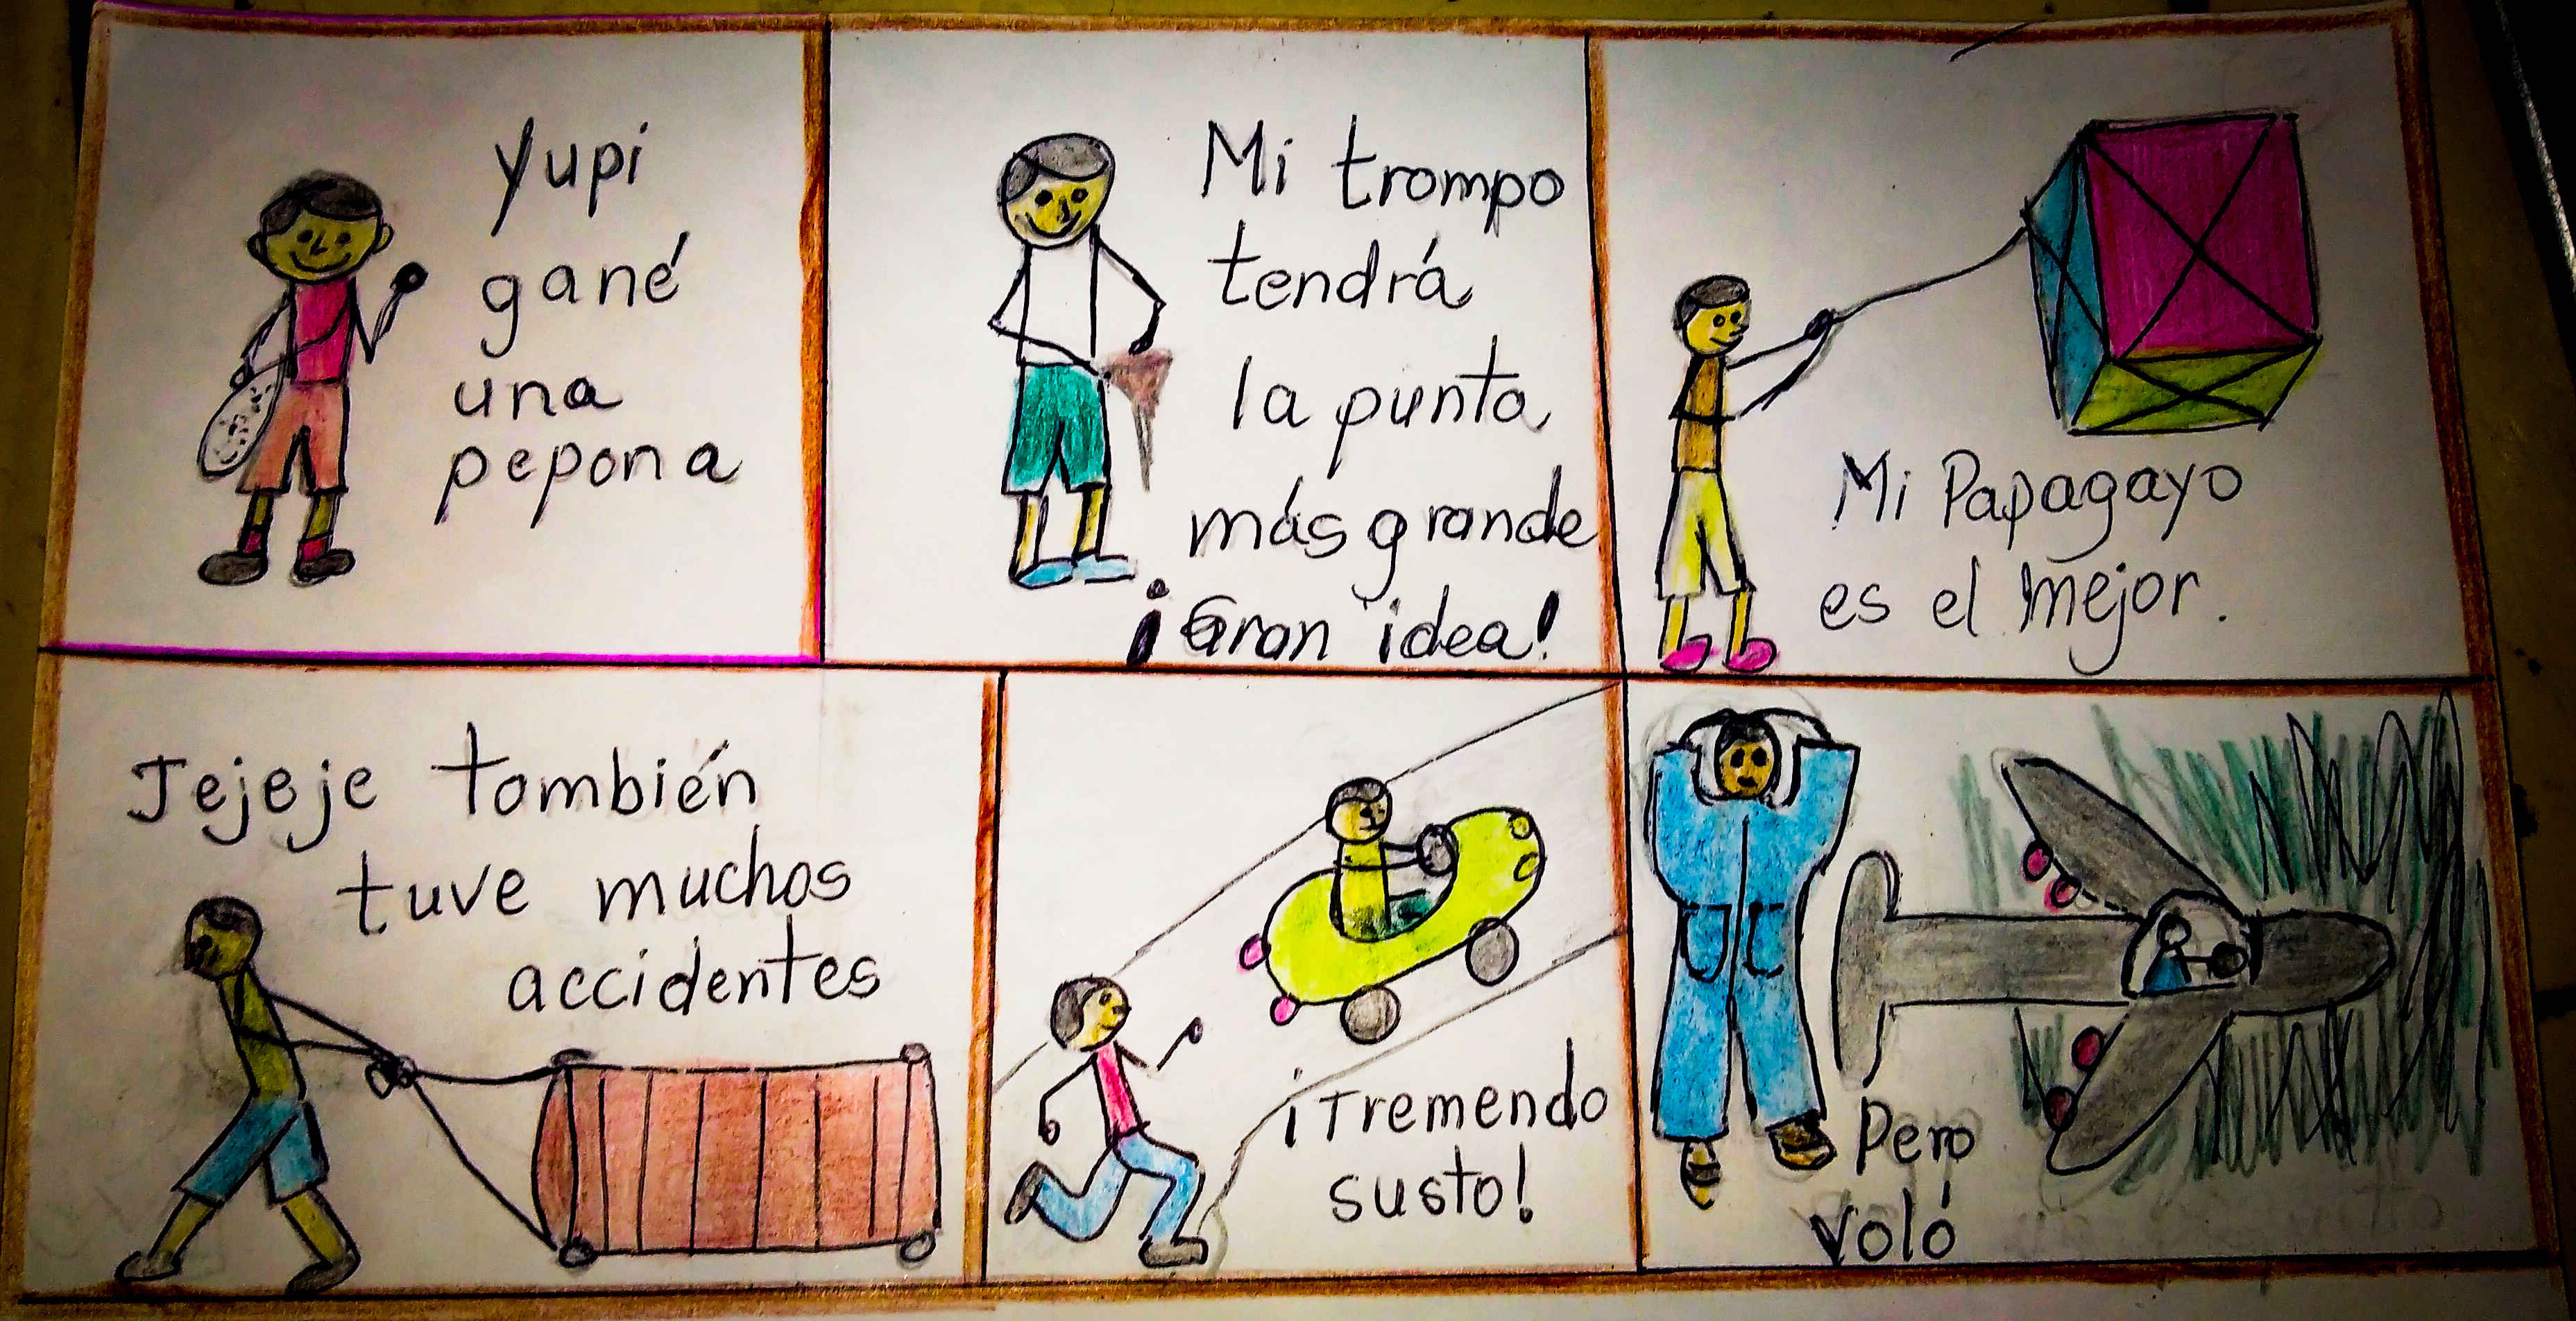 Yupi
gané
una
pepona
Mi trompo
tendrá
la punta
más grande
¡Gran idea!
Mi Papagayo
es el mejor.
Jejeje también
tuve muchos
accidentes
¡Tremendo
susto!
Pero
voló